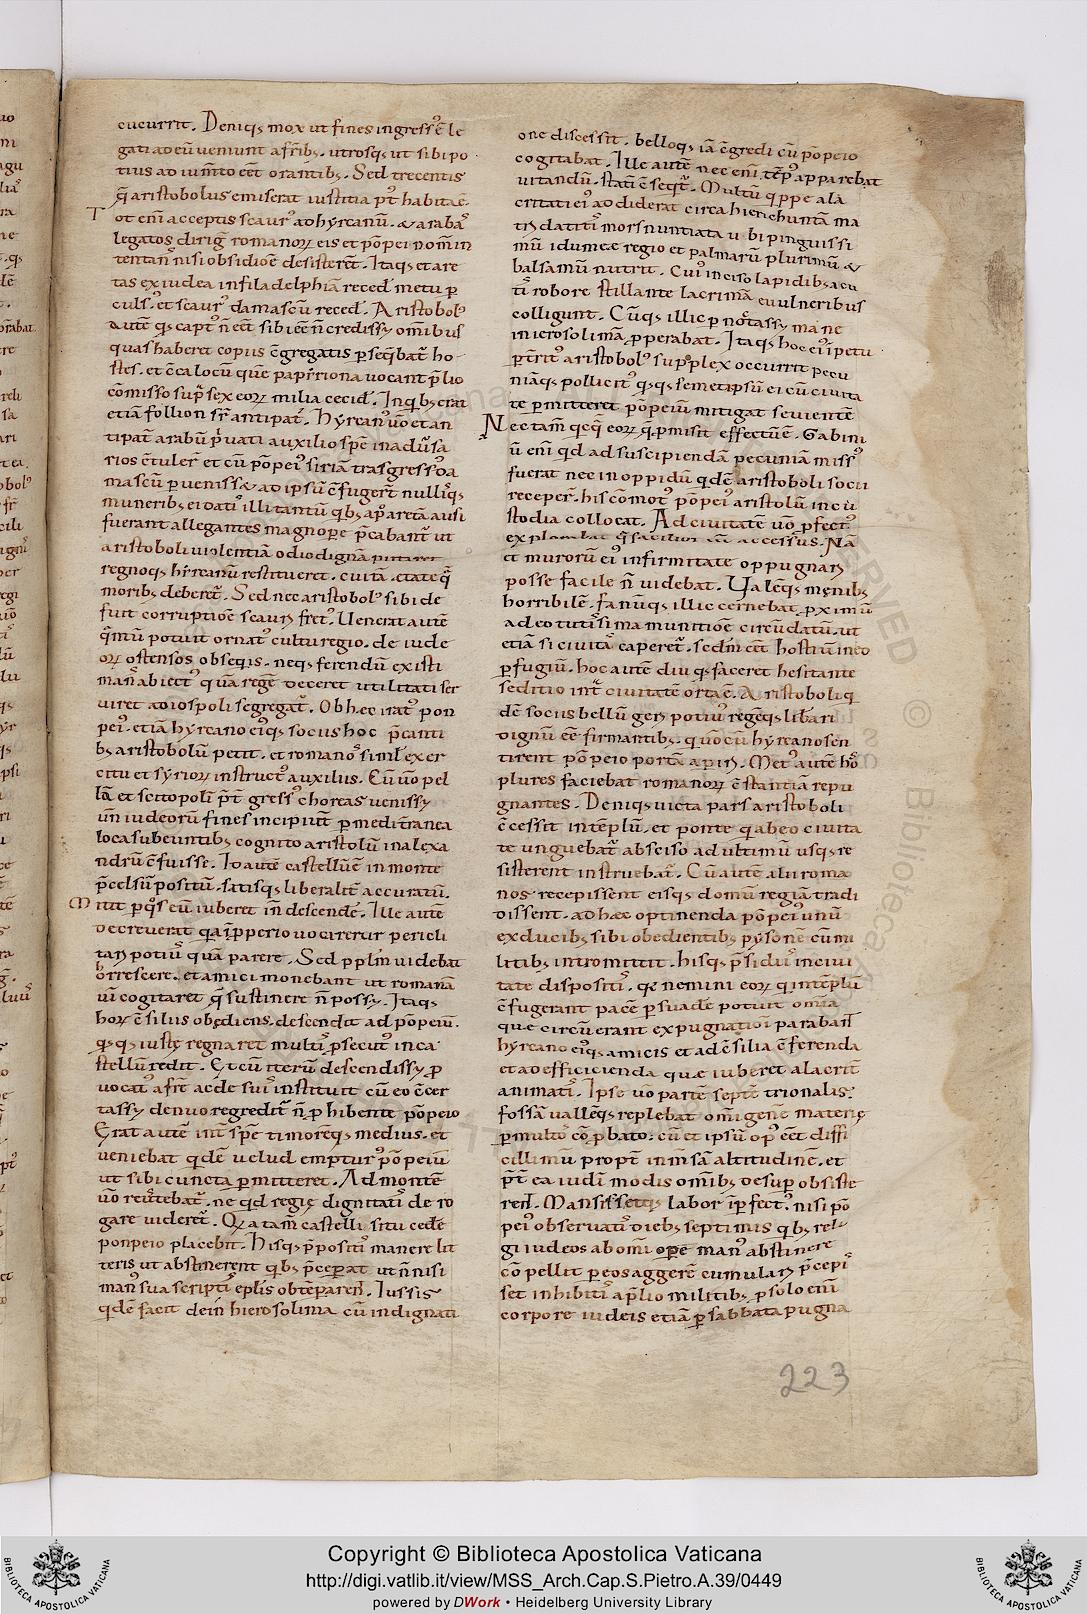 cucurrit. Deniq; mox ut fines ingress̄ ē le
gati ad eū veniunt a frīb;. utrosq; ut sibi po
tius adium̄to eēt orantib;. Sed trecentis
q̄ aristobolus emiserat iustitia p̄t habita ē.
legatos dirig̅ romanoꝝ eis et pōpei nomin
tentan̄ nisi obsidiōe desisterēt. Itaq; et are
tas ex iudea infiladelphiā reced̄ metu ꝑ
culs᾽. et scaur᾽ damascū reced̄. Aristobol᾽
quas haberet copiis c̄gregatis ꝑseq̄bat᾽ ho
stes. et c̄ca locū quē papirriona vocant p̄lio
cōmisso sup᾽ sex eoꝝ milia cecid̄. In quib; erat
etiā follion fr̄ antipat᾽. Hyrcan᾽ v̄o et an
tipat᾽ arabū p᾽vati auxilio spē in adūsa
rios c̄tuler̄ et cū pōpei᾽ siriā trāsgress᾽ da
mascū ꝑveniss& ad ipsū c̄fuger̄t nulliq̄s
munerib; ei dati᾽ illi tantū qb; ap᾽ aretā ausi
fuerant allegantes magnoꝑe p̄cabant᾽ ut
aristoboli violentiā odio dignā putaret
regnoq; hyrcanū restitueret. cui tā etate q̄
morib; deberet᾽. Sed nec aristobol᾽ sibi de
fuit corruptiōe scauri fret᾽. Venerat autē
q̄mtū potuit ornat᾽ cultu regio. de iude
oꝝ ostensos obseqis. neq; ferendū existi
man̄ abiect᾽ quā regē deceret utilitati ser
viret a diospoli segregat᾽. Ob hec irat᾽ pon
pei᾽. etiā hyrcano ei᾽q; sociis hoc p̄canti
b; aristobolū petit. et romano᾽ simłex er
citu et syrioꝝ instruct᾽ auxiliis. Cū v̄o pel
lā et scitopolī p̄t gress᾽ choreas veniss&
un̄ iudeorū fines incipiūt ꝑ mediterranea
loca subeuntib; cognito aristolū in alexa
ndrū c̄fuisse. Id autē castellū ē in monte
p̄celsū positū. satisq; liberalit᾽ accuratū.
Mitit ꝑ q᾽s eū iuberet in̄ descende᾽. Ille autē
tari poti᾽ quā parere. Sed p plm̄ videbat
horrescere. et amici monebant ut romanā
vī cogitaret q̄ sustinere n̄ poss&. Itaq;
hoꝝ c̄siliis obędiens. descendit ad pōpeiū.
q᾽s q; iustę regnaret mult᾽ ꝑsecut᾽ in ca
stellū redit. Et cū iterū descendiss& ꝑ
vocat᾽ a fr̄e ac de sui᾽ instituit cū eo c̄cer
tass& denuo regredit᾽ n̄ ꝓhibente pōpeio
Erat autē int᾽ spē timorēq; medius. et
veniebat qdē velud emptur᾽ pōpeiū
ut sibi cuncta ꝑmitteret. Ad montē
v̄o rev᾽tebat᾽. ne qd regię dignitati᾽ de ro
gare videret᾽. Qa tam̄ castelli situ cede᾽
ponpeio placebit. Hisq; p̄positi᾽ manere lit
teris ut abstinerent qb; p̄ceꝑat ut n̄ nisi
man᾽ sua scripti᾽ epłis obtēparen̄. Iussis
qdē facit dein̄ hierosolima cū indignati
one discessit. belloq; iā c̄gredi cū pōpeio
cogitabat. Ille autē nec enī tēp᾽ apparebat
vitandū. statī ē seqt᾽. Multū qippe ala
critati ei᾽ addiderat circa hierichuntā ma
tridati᾽ mors nuntiata ubi pinguissi
mū idumeæ regio et palmarū plurimū &
balsamū nutrit. Cui᾽ inciso lapidib; acu
ti᾽ robore stillante lacrimā e vulneribus
colligunt. Cūq; illic ꝑnoctass& mane
in ierosolimā ꝓperabat. Itaq; hoc ei᾽ īpetu
ꝑt᾽rit᾽ aristobol᾽ supplex occurrit pecu
niāq; pollicit᾽ q;q; semetipsū ei cū civita
te ꝑmitteret pōpeiū mitigat sevientē
Nec tam̄ qcq̄ eoꝝ q̄ ꝓmisit effectū ē. Gabini
ū enī qd ad suscipiendā pecuniā miss᾽
fuerat nec in oppidū qdē aristoboli socii
receper̄. his cōmot᾽ pōpei᾽ aristolū in cu
stodia collocat. Ad civitatē v̄o ꝓfect᾽
et muroruū ei᾽ infirmitate oppugnari
posse facile n̄ videbat. Valēq; męnib;
horribilē. fanūq; illic cernebat ꝓximū
adeo tutissima munitiōe circūdatū. ut
etiā si civita᾽ caperet᾽. sed̄m eēt hostiū in eo
ꝑfugiū. hoc autē diu q;s faceret hesitante
seditio int᾽ civitatē orta ē. Aristoboli q
dē sociis bellū geri potiu᾽ regēq; lib̄ari
dignū eē firmantib;. qi v̄o cū hyrcano sen
tirent pōpeio portā apiri. Met᾽ autē ho᾽
plures faciebat romanoꝝ c̄stantiā repu
gnantes. Deniq; victa pars aristoboli
c̄cessit in tēplū. et ponte q ab eo civita
te iungebat᾽ absciso ad ultimū usq; re
sisterent instruebat᾽. Cū autē alii roma
nos recepissent eisq; domū regiā tradi
dissent. ad hæc optinenda pōpei᾽ unū
ex ducib; sibi obedientib; pysonē cū mi
litib; intromittit. hisq; p̄sidii᾽ in civi
tate dispositi᾽. qa nemini eoꝝ q in tēplū
c̄fugerant pacē ꝑsuade᾽ potuit omīa
que circūerant expugnationi parabat᾽
hyrcano ei᾽q; amicis et ad c̄silia c̄ferenda
et ad efficicienda quæ iuberet alacrit᾽
animati᾽. Ipse v̄o partē septētrionalis
fossā vallēq; replebat omī genē materię
ꝑ multo᾽ cōꝓbato. cū et ipsū op᾽ eēt diffi
cillimū propt᾽ inmsā altitudinē. et
p̄t ea iudī modis omīb; desuꝑ obsiste
ren̄. Mansissetq; labor īꝑfect᾽. nisi pō
pei᾽ observati᾽ dieb; septimis qb; reli
gi iudeos ab omī opere man᾽ abstinere
cōpellit ꝑ eos aggerē cumulari p̄cepi
set inhibiti᾽ a p̄lio militib; ꝓ solo enī
corpore iudeis etiā ꝑ sabbata pugna
223
Copyright © Biblioteca Apostolica Vaticana
http://digi.vatlib.it/view/MSS_Arch.Cap.S.Pietro.A.39/0449
powered by DWork • Heidelberg University Library